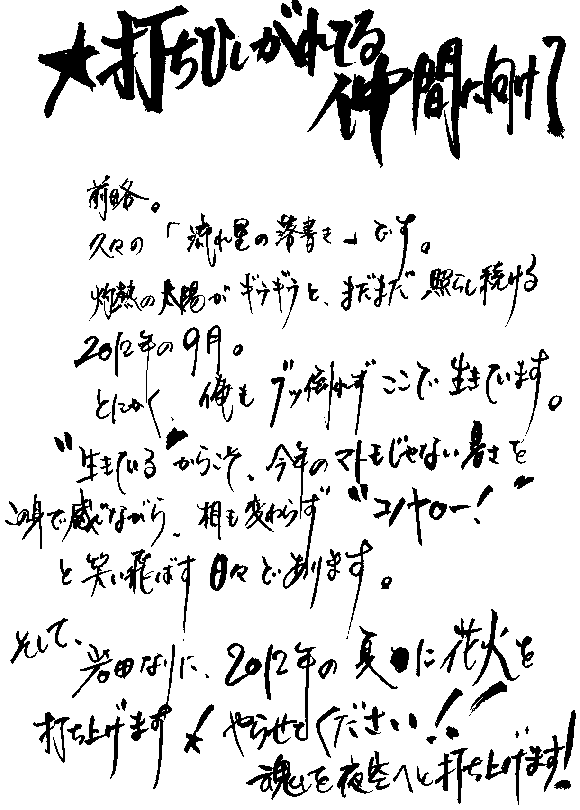 ★打ちひしがれてる
仲間に向け?
前略。
久々の「流れ星の落書き」です。
灼熱の太陽がギラギラと、まだまだ照らし続ける
2012年の9月。
とにかく、俺もブッ倒れずここで生きています。
"生きている"からこそ、今年のマトモじゃない暑さを
この身で感じながら、相も変わらず"コノヤロー!"
と笑い飛ばす日々であります。
そして、岩田なりに、2012年の夏に花火を
打ち上げます★やらせてください!!
魂を夜空へと打ち上げます!